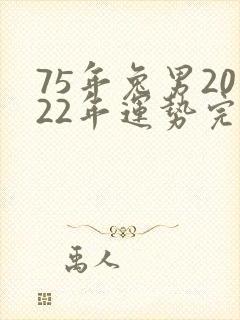 75年兔男20
22年運勢完
禹人